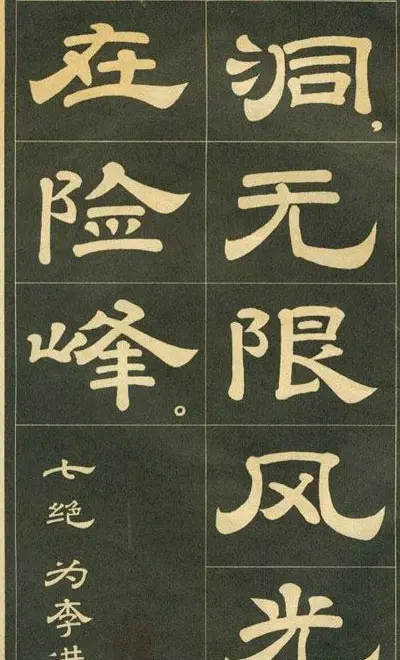 洞，无限风光
在险峰。
七绝 为李